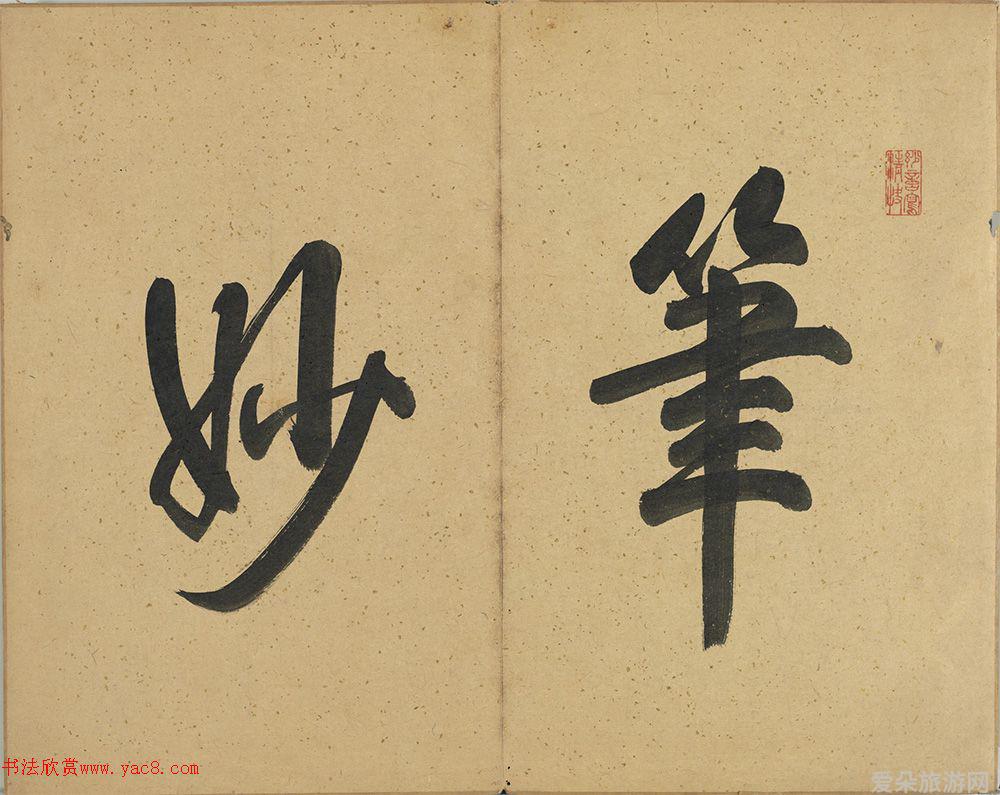 筆
妙
书法欣赏www.yac8.com
爱朵旅游网